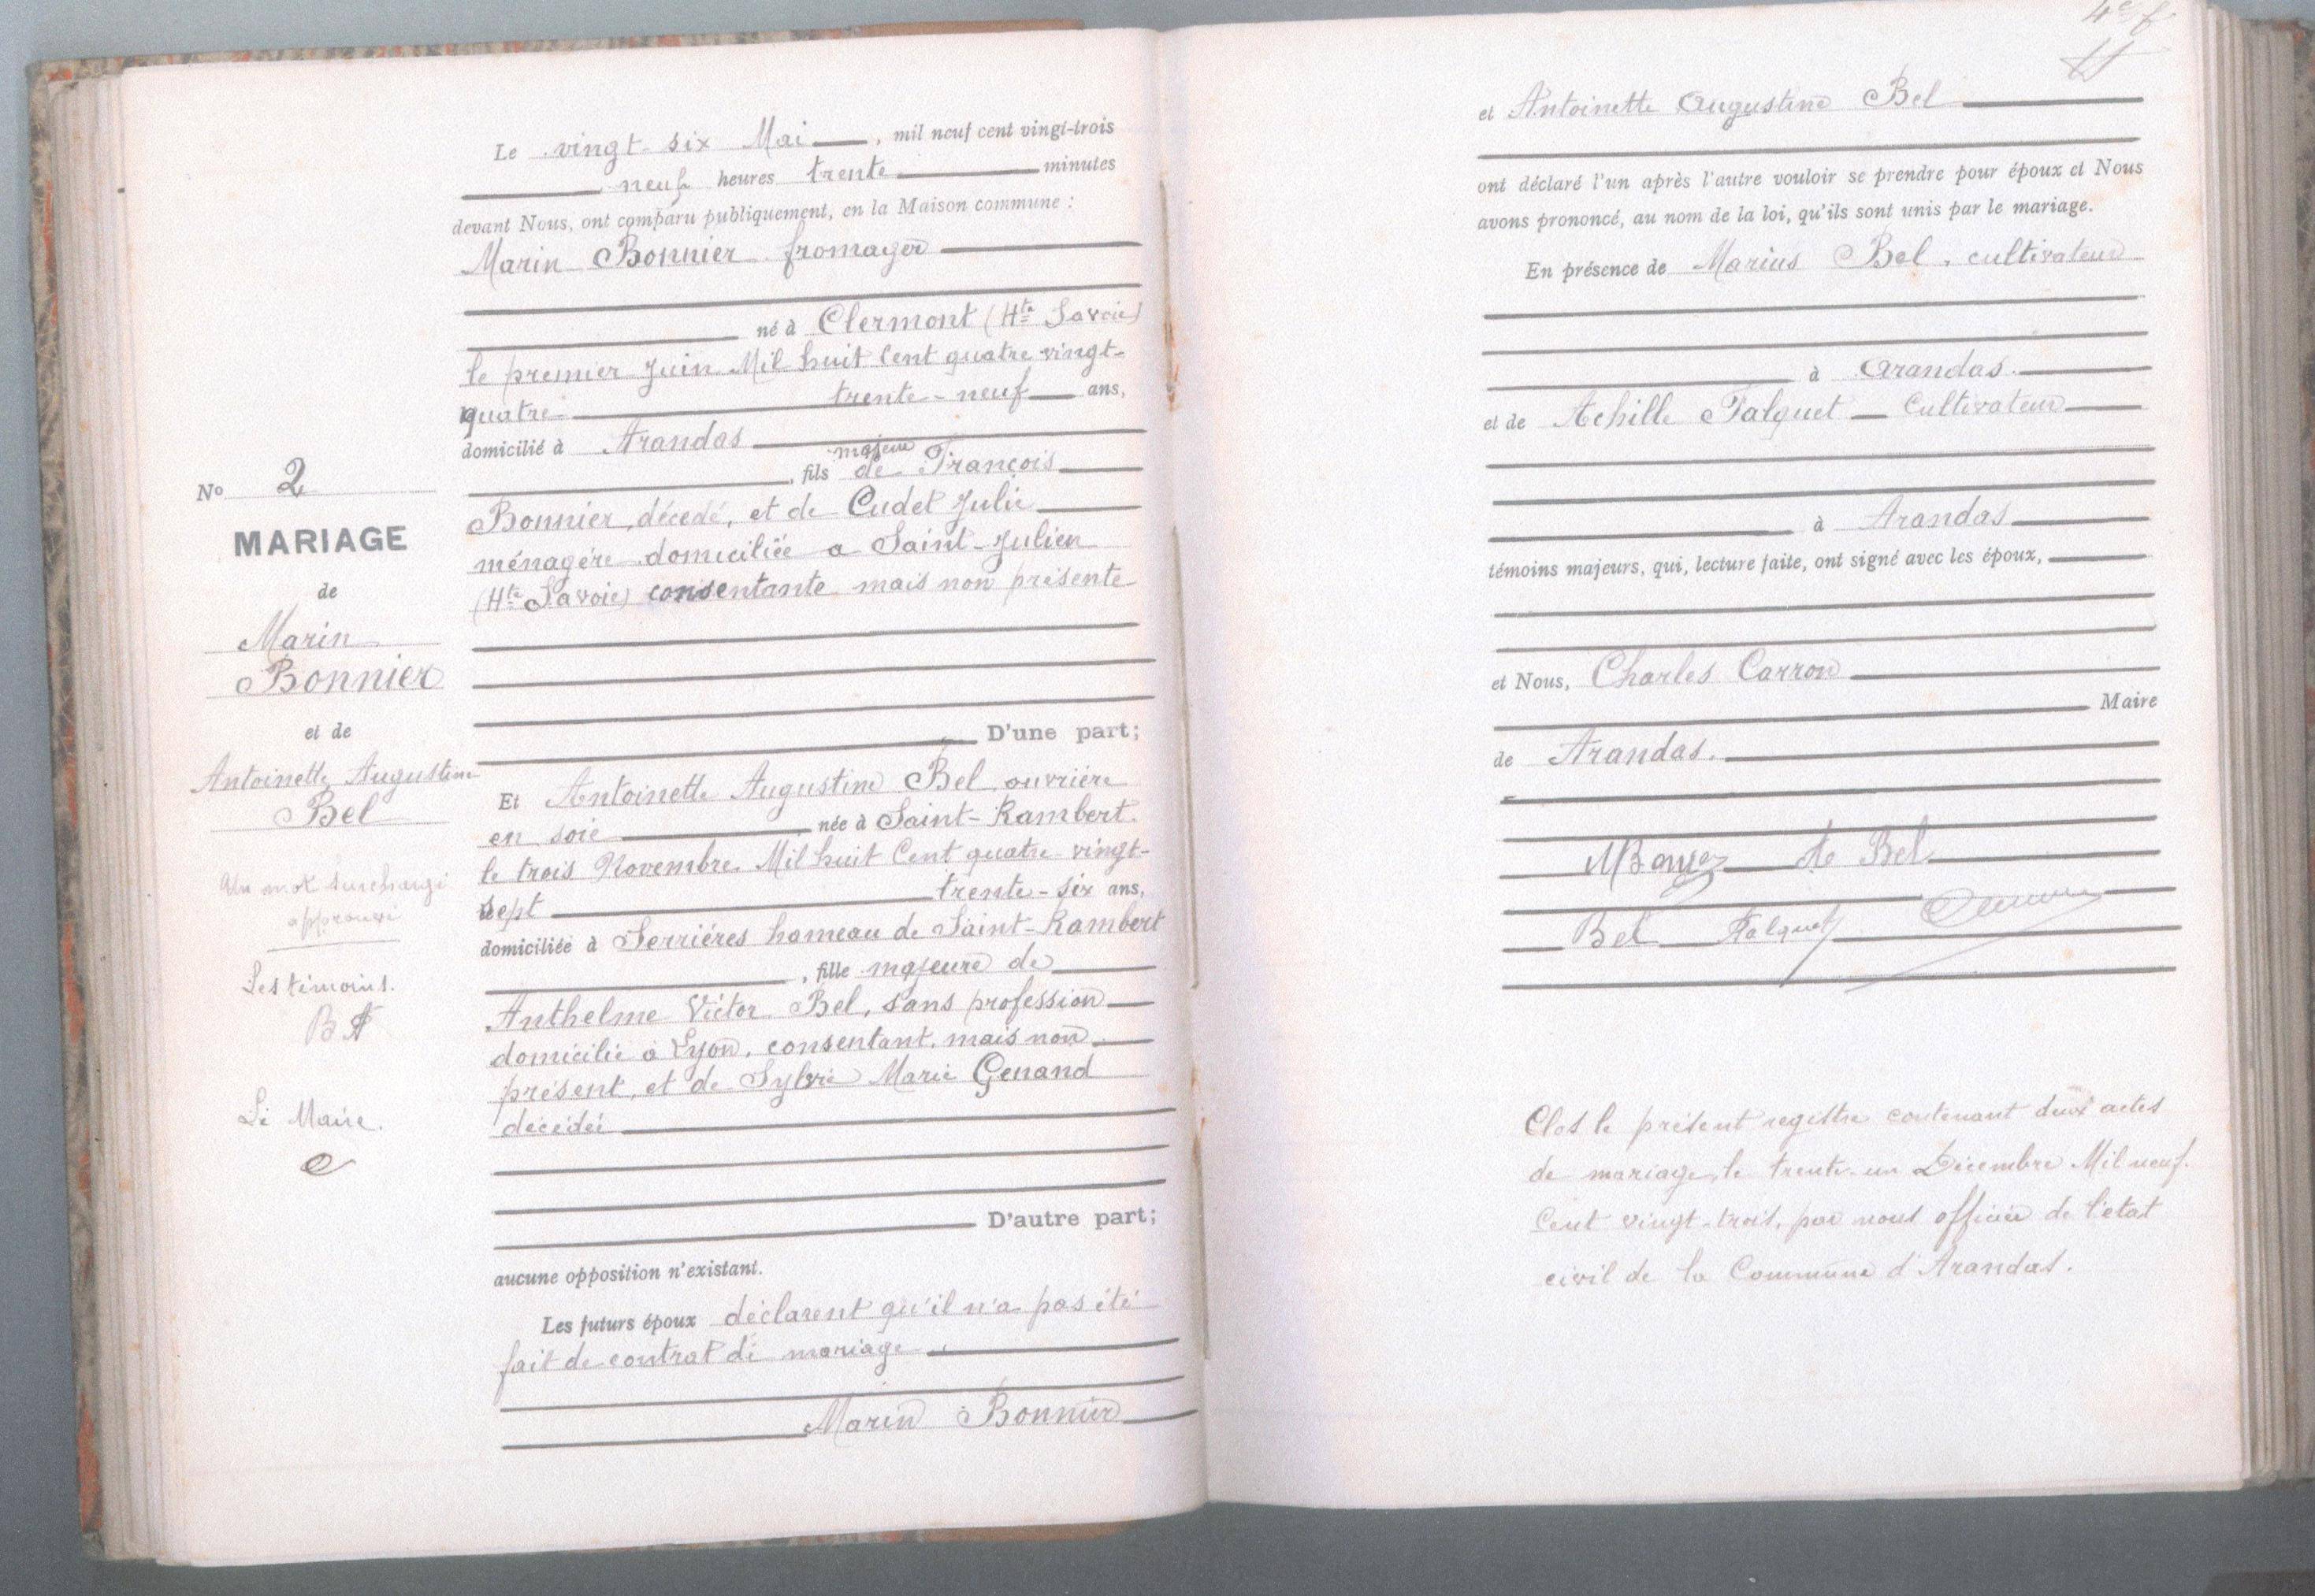 No 2
MARIAGE
de
Marin
Bonnier
et de
Antoinette Augustine
Bel
Un mot surchargé
approuvé
Les témoins.
Le Maire.
Le vingt-six Mai, mil neuf cent vingt-trois
neuf heures trente minutes
devant Nous, ont comparu publiquement, en la Maison commune :
Marin Bonnier fromager
né à Clermont (Hte Savoie)
le premier Juin Mil huit Cent quatre vingt-
quatre trente-neuf ans,
domicilié à Arandas
majeur
, fils de François
Bonnier, décedé, et de Cudet Julie
ménagère domiciliée a Saint-Julien
(Hte Savoie) consentante mais non présente
D'une part;
Et Antoinette Augustine Bel, ouvrière
en soie née à Saint-Rambert.
le trois Novembre Mil huit Cent quatre vingt-
sept trente-six ans,
domiciliée à Serrières hameau de Saint-Rambert
, fille majeure de
Anthelme Victor Bel, sans profession
domicilié à Lyon, consentant, mais non
présent, et de Sylvie Marie Genand
décédée
D'autre part;
aucune opposition n'existant.
Les futurs époux déclarent qu'il n'a pas été
fait de contrat de mariage.
Marin Bonnier
4e f
et Antoinette Augustine Bel
ont déclaré l'un après l'autre vouloir se prendre pour époux et Nous
avons prononcé, au nom de la loi, qu'ils sont unis par le mariage.
En présence de Marius Bel, cultivateur
à Arandas.
et de Achille Falquet Cultivateur
à Arandas
témoins majeurs, qui, lecture faite, ont signé avec les époux,
et Nous, Charles Carron
Maire
de Arandas.
Bel
Bel Falquet
Clos le présent registre contenant deux actes
de mariage, le trente-un Décembre Mil neuf
Cent vingt-trois, par nous officier de l'état
civil de la Commune d'Arandas.